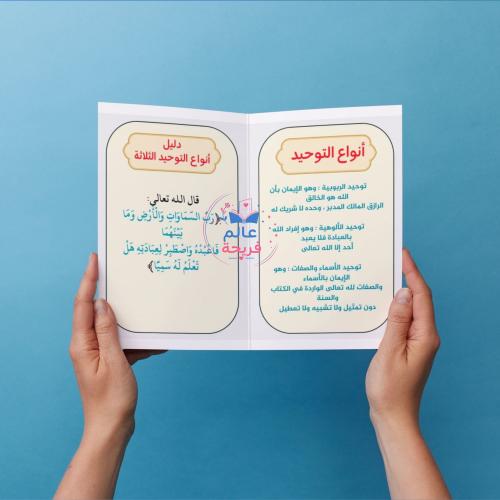 أنواع التوحيد
توحيد الربوبية : وهو الإيمان بأن
الله هو الخالق
الرازق المالك المدبر ، وحده لا شريك له
توحيد الألوهية : وهو إفراد الله
بالعبادة فلا يعبد
أحد إلا الله تعالى
توحيد الأسماء والصفات : وهو
الإيمان بالأسماء
والصفات لله تعالى الواردة في الكتاب
والسنة
دون تمثيل ولا تشبيه ولا تعطيل
دليل
أنواع التوحيد الثلاثة
قال الله تعالى:
رَبُّ السَّمَاوَاتِ وَالْأَرْضِ وَمَا
بَيْنَهُمَا
فَاعْبُدْهُ وَاصْطَبِرْ لِعِبَادَتِهِ هَلْ
تَعْلَمُ لَهُ سَمِيًّا﴾
عالم
فريحة